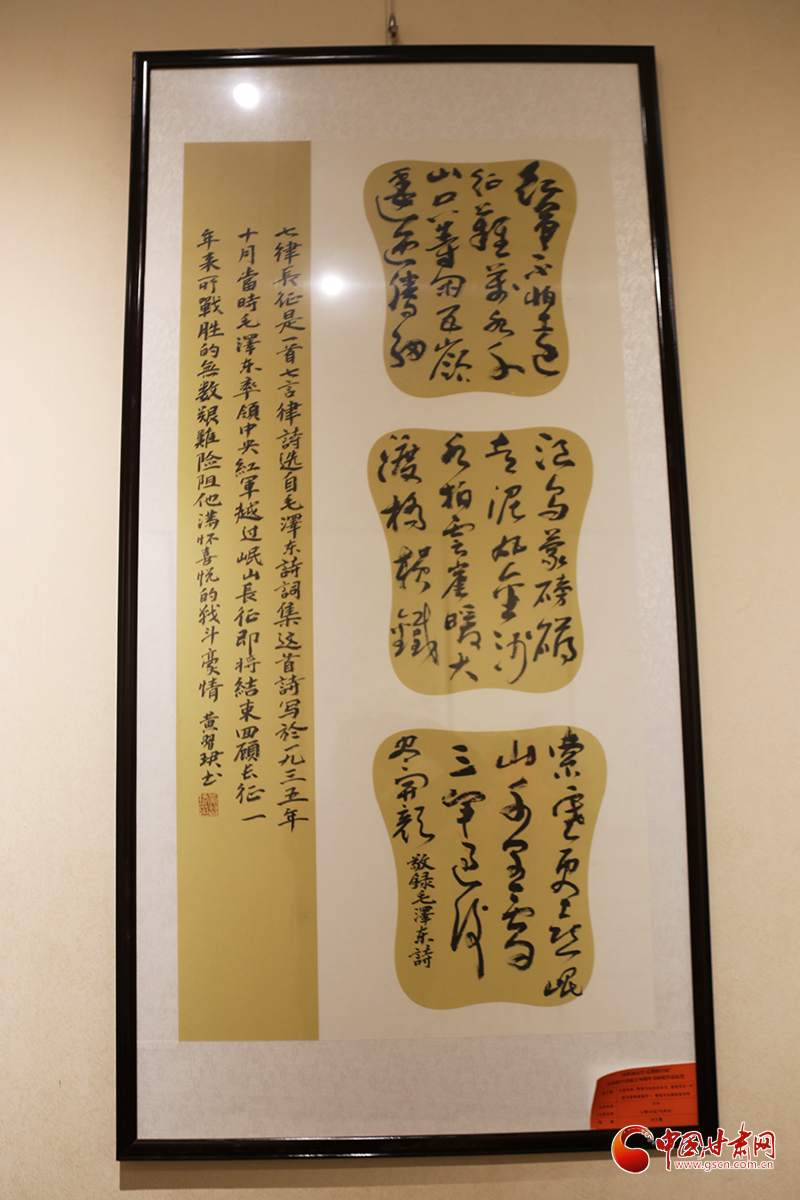 紅軍不怕遠
征難萬水千
山只等閑五嶺
逶迤騰細
浪烏蒙磅礴
走泥丸金沙
水拍雲崖暖大
渡橋橫鐵
索寒更喜岷
山千里雪
三軍過後
盡開顏 敬録毛澤东詩
七律長征是一首七言律詩选自毛澤东詩詞集这首詩写於一九三五年
十月當時毛澤东率領中央紅軍越过岷山長征即将結束回顾长征一
年来所戰胜的無数艰難险阻他满怀喜悦的战斗豪情 黄習珙书
中国甘肃网
www.gscn.com.cn